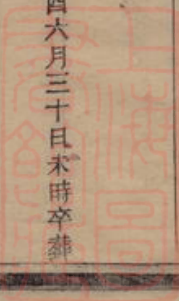 四六月三十日未時卒葬